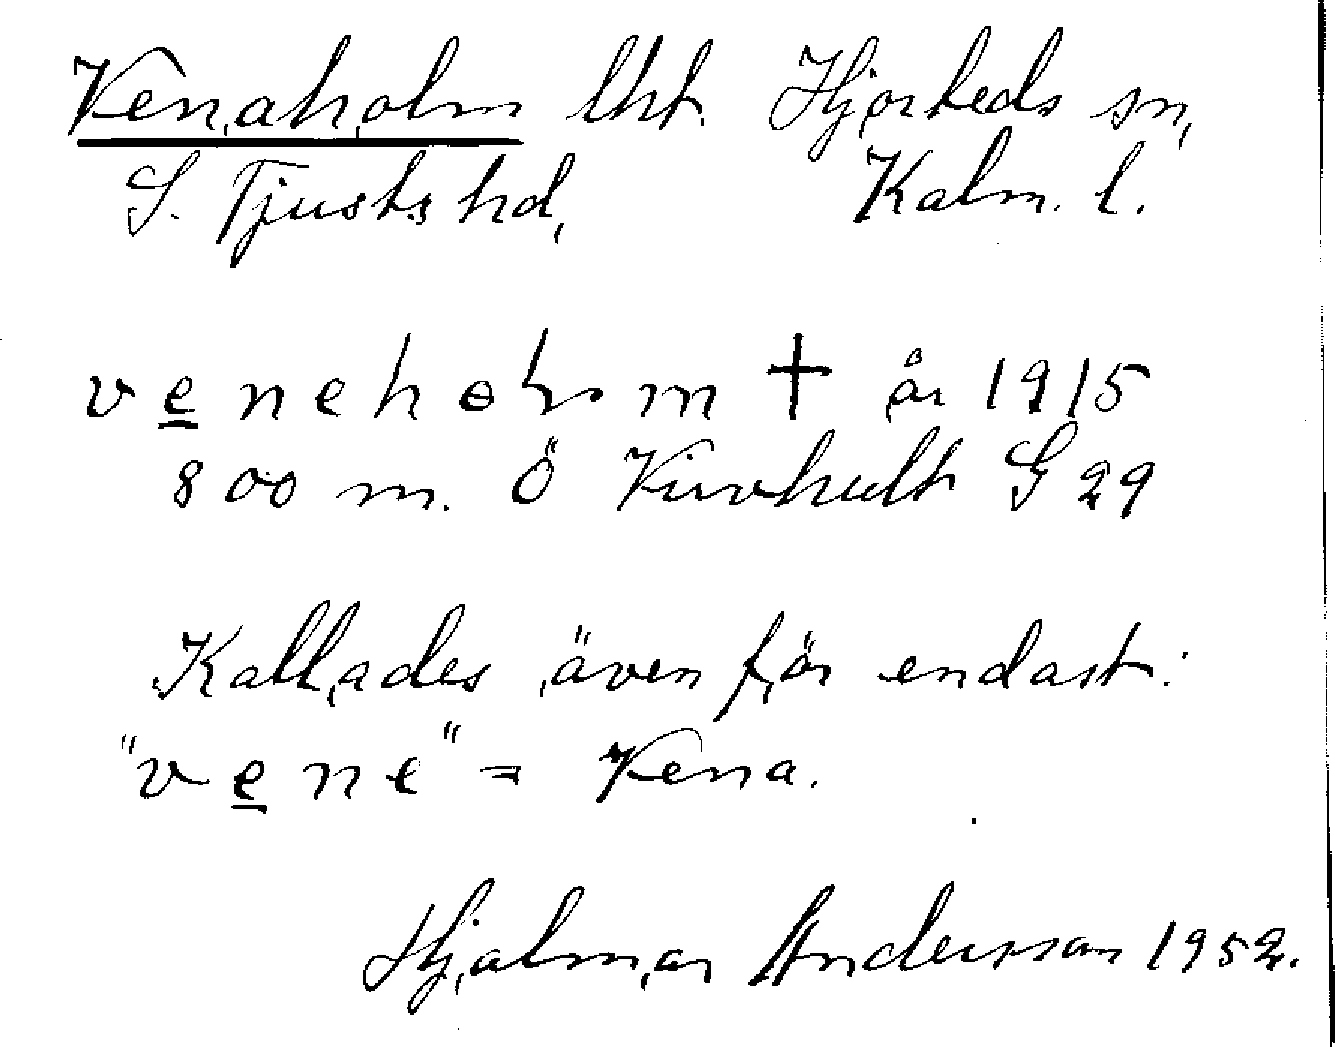 Venaholm lht. Hjorteds sn,
S. Tjusts hd, Kalm. l.
v e n e h o l m † år 1915
800 m. Ö Virvhult G 29
Kallades även för endast:
"v e n e" = Vena.
Hjalmar Andersson 1952.